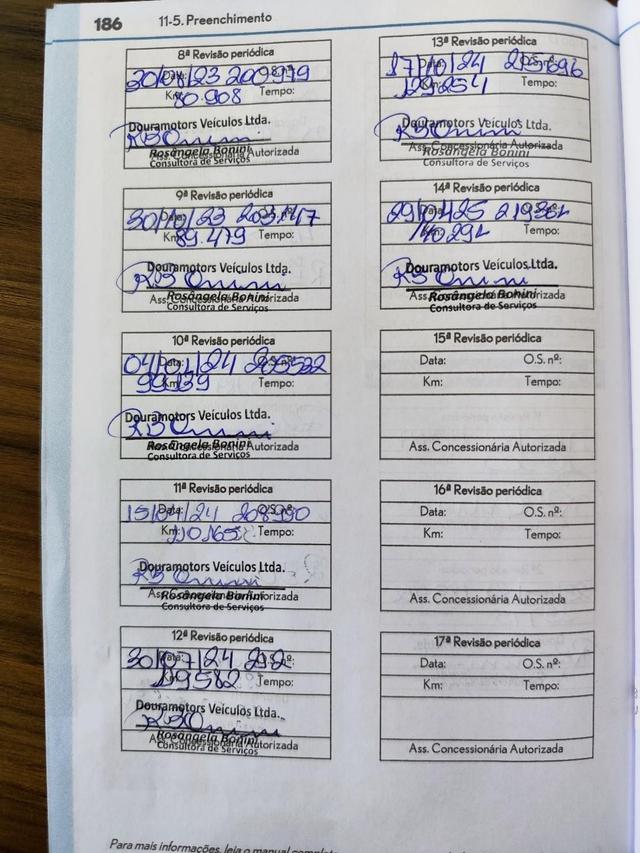 186 11-5. Preenchimento
8ª Revisão periódica
Data: 23 200979
Km: 80.908 Tempo:
Douramotors Veículos Ltda.
Rosângela Bonini
Ass. Concessionária Autorizada
Consultora de Serviços
9ª Revisão periódica
30/10/23
Km: 89.479 Tempo:
Douramotors Veículos Ltda.
Rosângela Bonini
Ass. Concessionária Autorizada
Consultora de Serviços
10ª Revisão periódica
Data: 04/01/24
Km: 99.139 Tempo:
Douramotors Veículos Ltda.
Rosângela Bonini
Ass. Concessionária Autorizada
Consultora de Serviços
11ª Revisão periódica
Data: 15/04/24 208990
Km: 110.165 Tempo:
Douramotors Veículos Ltda.
Rosângela Bonini
Ass. Concessionária Autorizada
Consultora de Serviços
12ª Revisão periódica
Data: 30/07/24 O.S. nº:
Km: 119582 Tempo:
Douramotors Veículos Ltda.
Rosângela Bonini
Ass. Concessionária Autorizada
Consultora de Serviços
13ª Revisão periódica
17/10/24 215696
129.254 Tempo:
Douramotors Veículos Ltda.
Ass. Concessionária Autorizada
Rosângela Bonini
Consultora de Serviços
14ª Revisão periódica
Data: 25
Km: 140291 Tempo:
Douramotors Veículos Ltda.
Rosângela Bonini
Ass. Concessionária Autorizada
Consultora de Serviços
15ª Revisão periódica
Data: O.S. nº:
Km: Tempo:
Ass. Concessionária Autorizada
16ª Revisão periódica
Data: O.S. nº:
Km: Tempo:
Ass. Concessionária Autorizada
17ª Revisão periódica
Data: O.S. nº:
Km: Tempo:
Ass. Concessionária Autorizada
Para mais informações, leia o manual